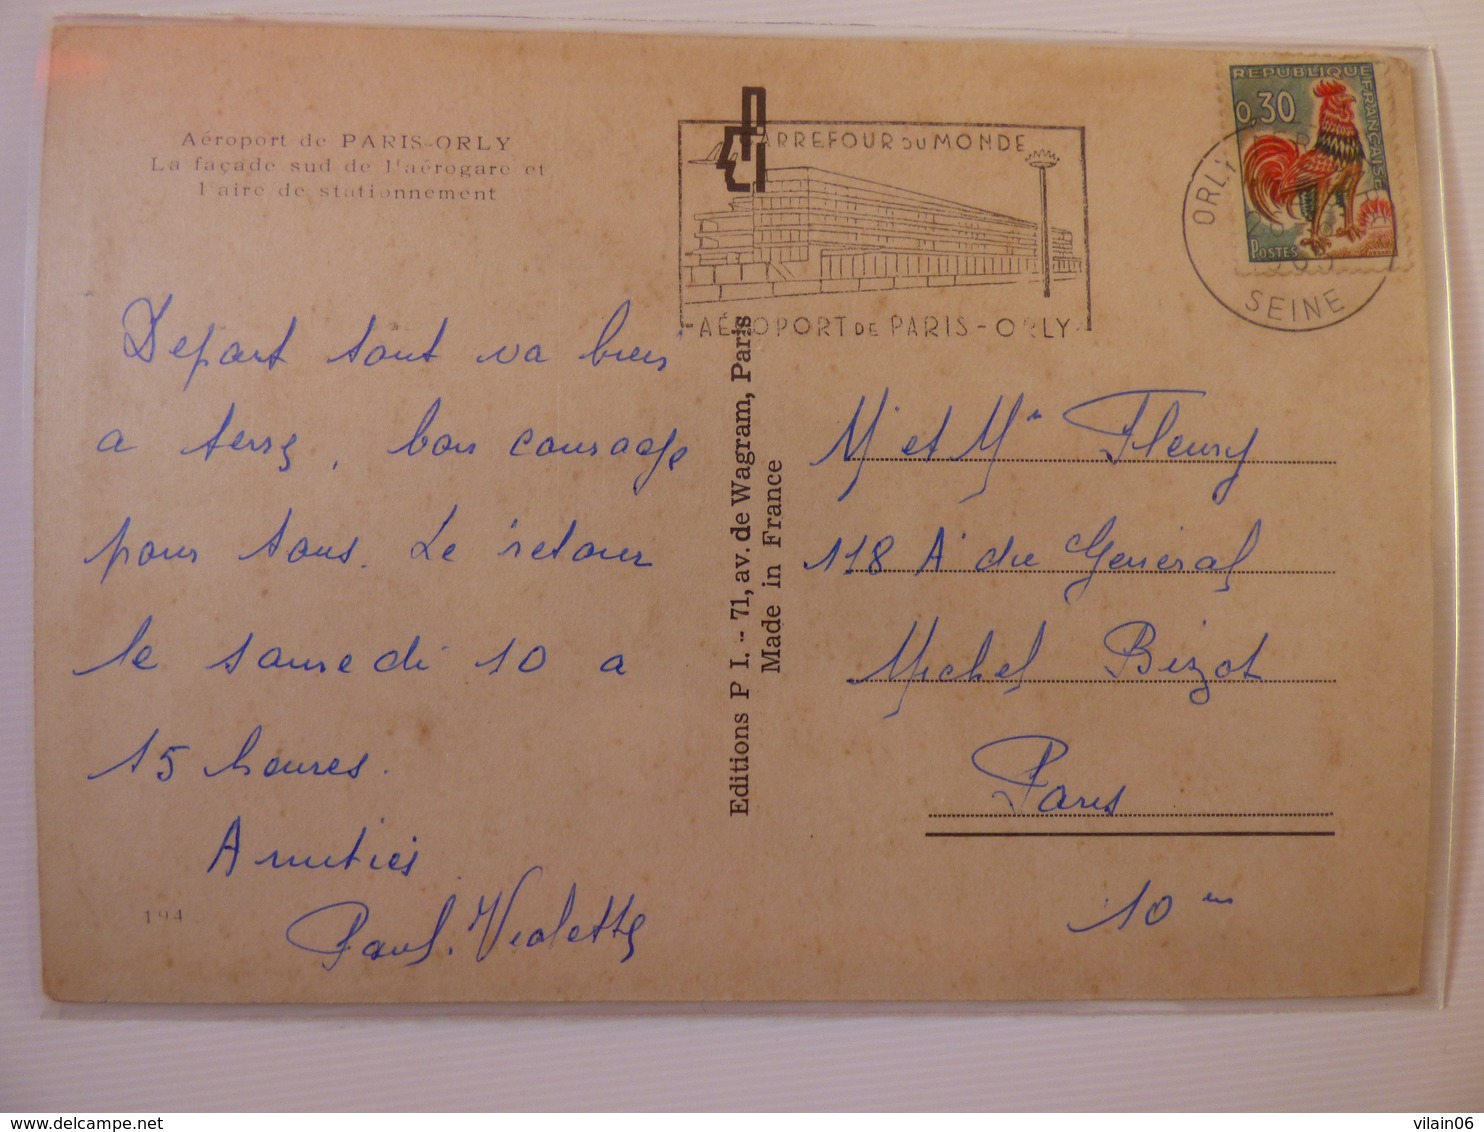 Aéroport de PARIS-ORLY
La façade sud de l'aérogare et
l'aire de stationnement
Depart tout va bien
a terre, bon courage
pour tous. Le retour
le samedi 10 a
15 heures.
Amitiés
Paul. Violette
194
Editions P I. - 71, av. de Wagram, Paris
Made in France
CARREFOUR DU MONDE
AÉROPORT DE PARIS - ORLY
REPUBLIQUE FRANÇAISE
0,30
POSTES
ORLY
SEINE
M. et Me Fleury
118 A. du General
Michel Bizot
Paris
10 em
delcampe.net
vilain06